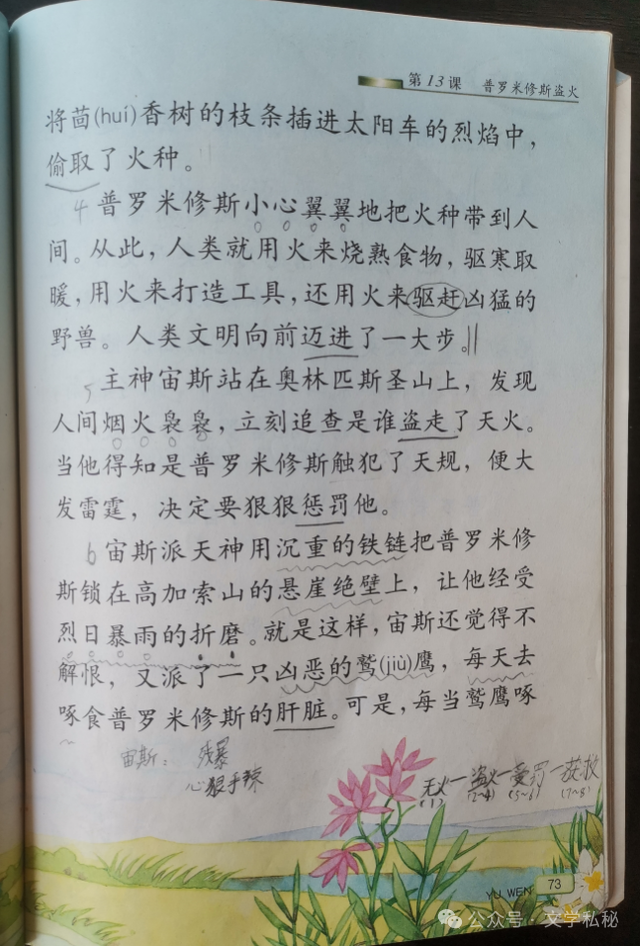 第13课 普罗米修斯盗火
将茴(huí)香树的枝条插进太阳车的烈焰中，
偷取了火种。
4 普罗米修斯小心翼翼地把火种带到人
间。从此，人类就用火来烧熟食物，驱寒取
暖，用火来打造工具，还用火来驱赶凶猛的
野兽。人类文明向前迈进了一大步。||
5 主神宙斯站在奥林匹斯圣山上，发现
人间烟火袅袅，立刻追查是谁盗走了天火。
当他得知是普罗米修斯触犯了天规，便大
发雷霆，决定要狠狠惩罚他。
6 宙斯派天神用沉重的铁链把普罗米修
斯锁在高加索山的悬崖绝壁上，让他经受
烈日暴雨的折磨。就是这样，宙斯还觉得不
解恨，又派了一只凶恶的鹫(jiù)鹰，每天去
啄食普罗米修斯的肝脏。可是，每当鹫鹰啄
宙斯：残暴
心狠手辣
无火—盗火—受罚—获救
(1) (2~4) (5~6) (7~8)
YU WEN 73
公众号·文学私秘